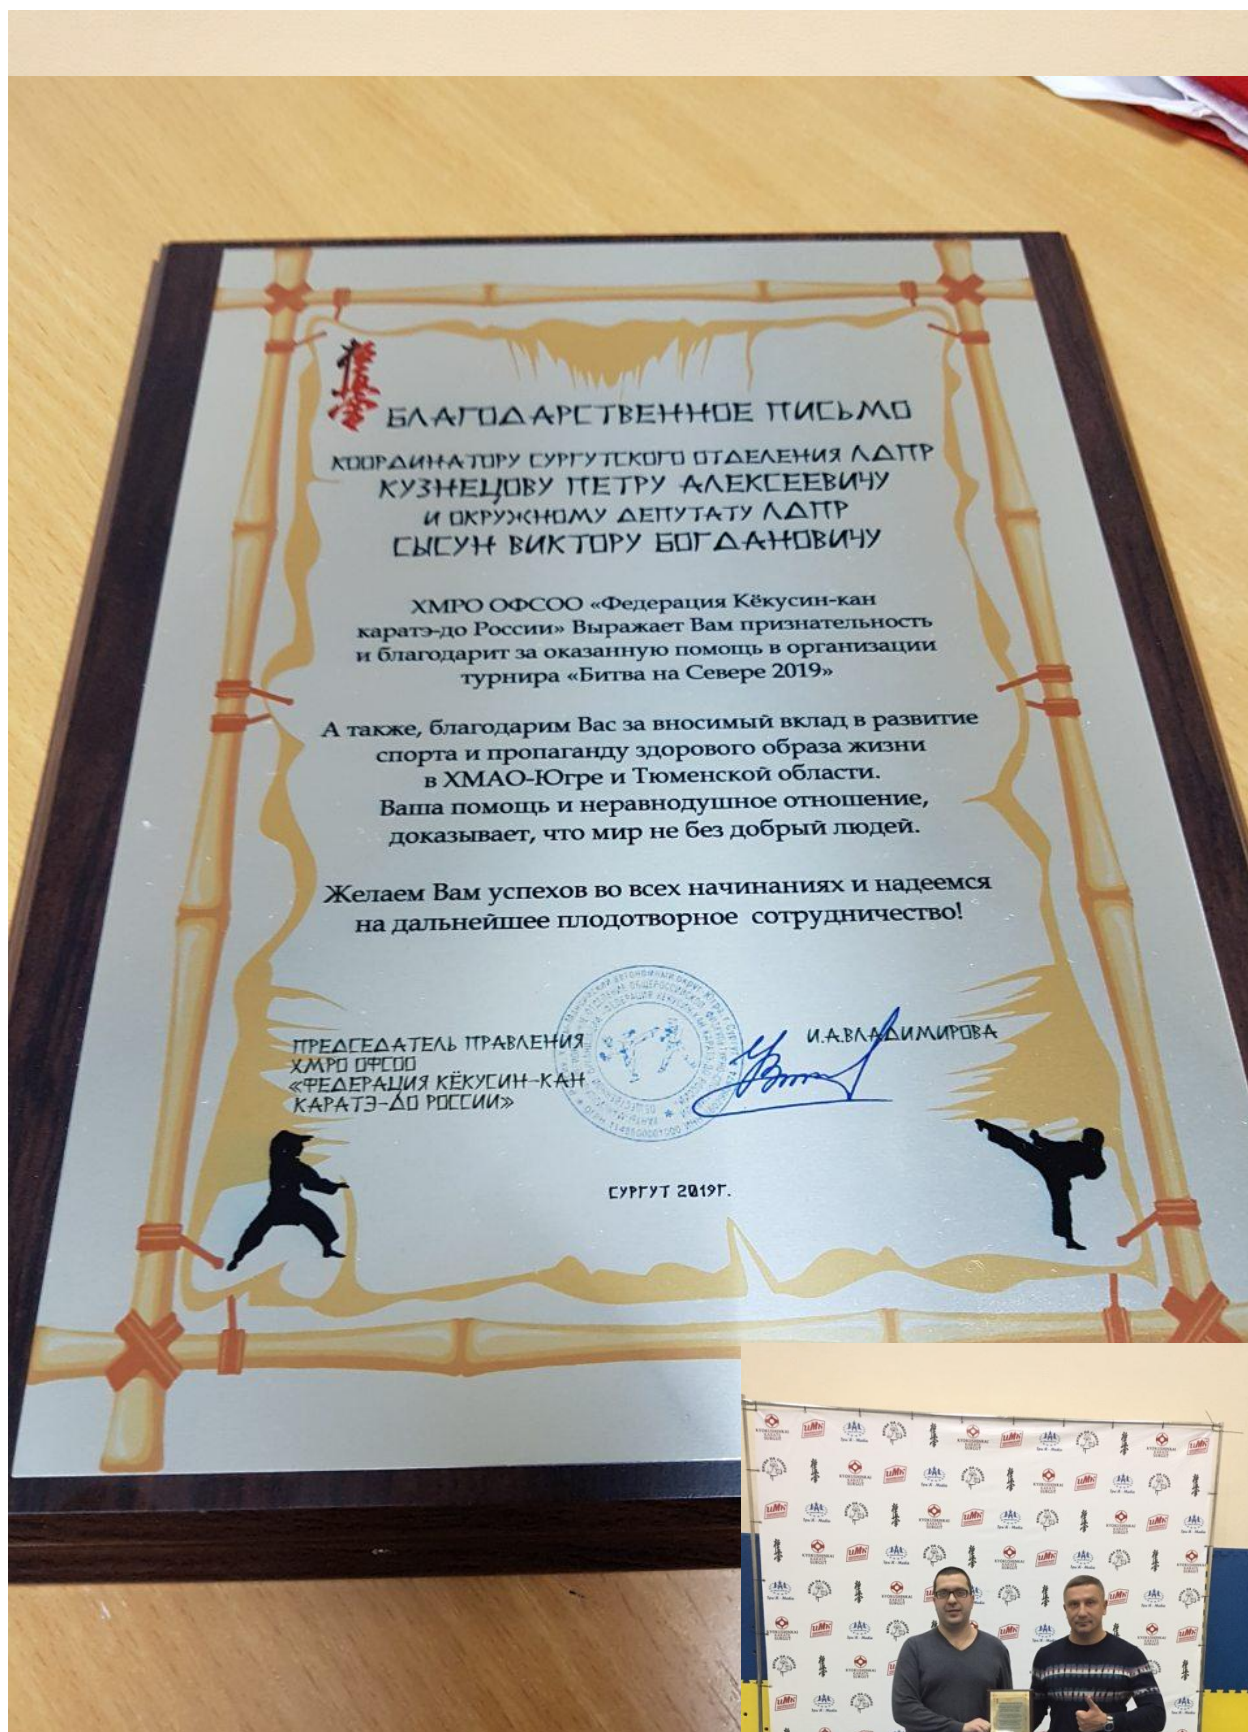 БЛАГОДАРСТВЕННОЕ ПИСЬМО
КООРДИНАТОРУ СУРГУТСКОГО ОТДЕЛЕНИЯ ЛДПР
КУЗНЕЦОВУ ПЕТРУ АЛЕКСЕЕВИЧУ
И ОКРУЖНОМУ ДЕПУТАТУ ЛДПР
СЫСУН ВИКТОРУ БОГДАНОВИЧУ
ХМРО ОФСОО «Федерация Кёкусин-кан
каратэ-до России» Выражает Вам признательность
и благодарит за оказанную помощь в организации
турнира «Битва на Севере 2019»
А также, благодарим Вас за вносимый вклад в развитие
спорта и пропаганду здорового образа жизни
в ХМАО-Югре и Тюменской области.
Ваша помощь и неравнодушное отношение,
доказывает, что мир не без добрый людей.
Желаем Вам успехов во всех начинаниях и надеемся
на дальнейшее плодотворное сотрудничество!
ПРЕДСЕДАТЕЛЬ ПРАВЛЕНИЯ
ХМРО ОФСОО
«ФЕДЕРАЦИЯ КЁКУСИН-КАН
КАРАТЭ-ДО РОССИИ»
И.А.ВЛАДИМИРОВА
СУРГУТ 2019Г.